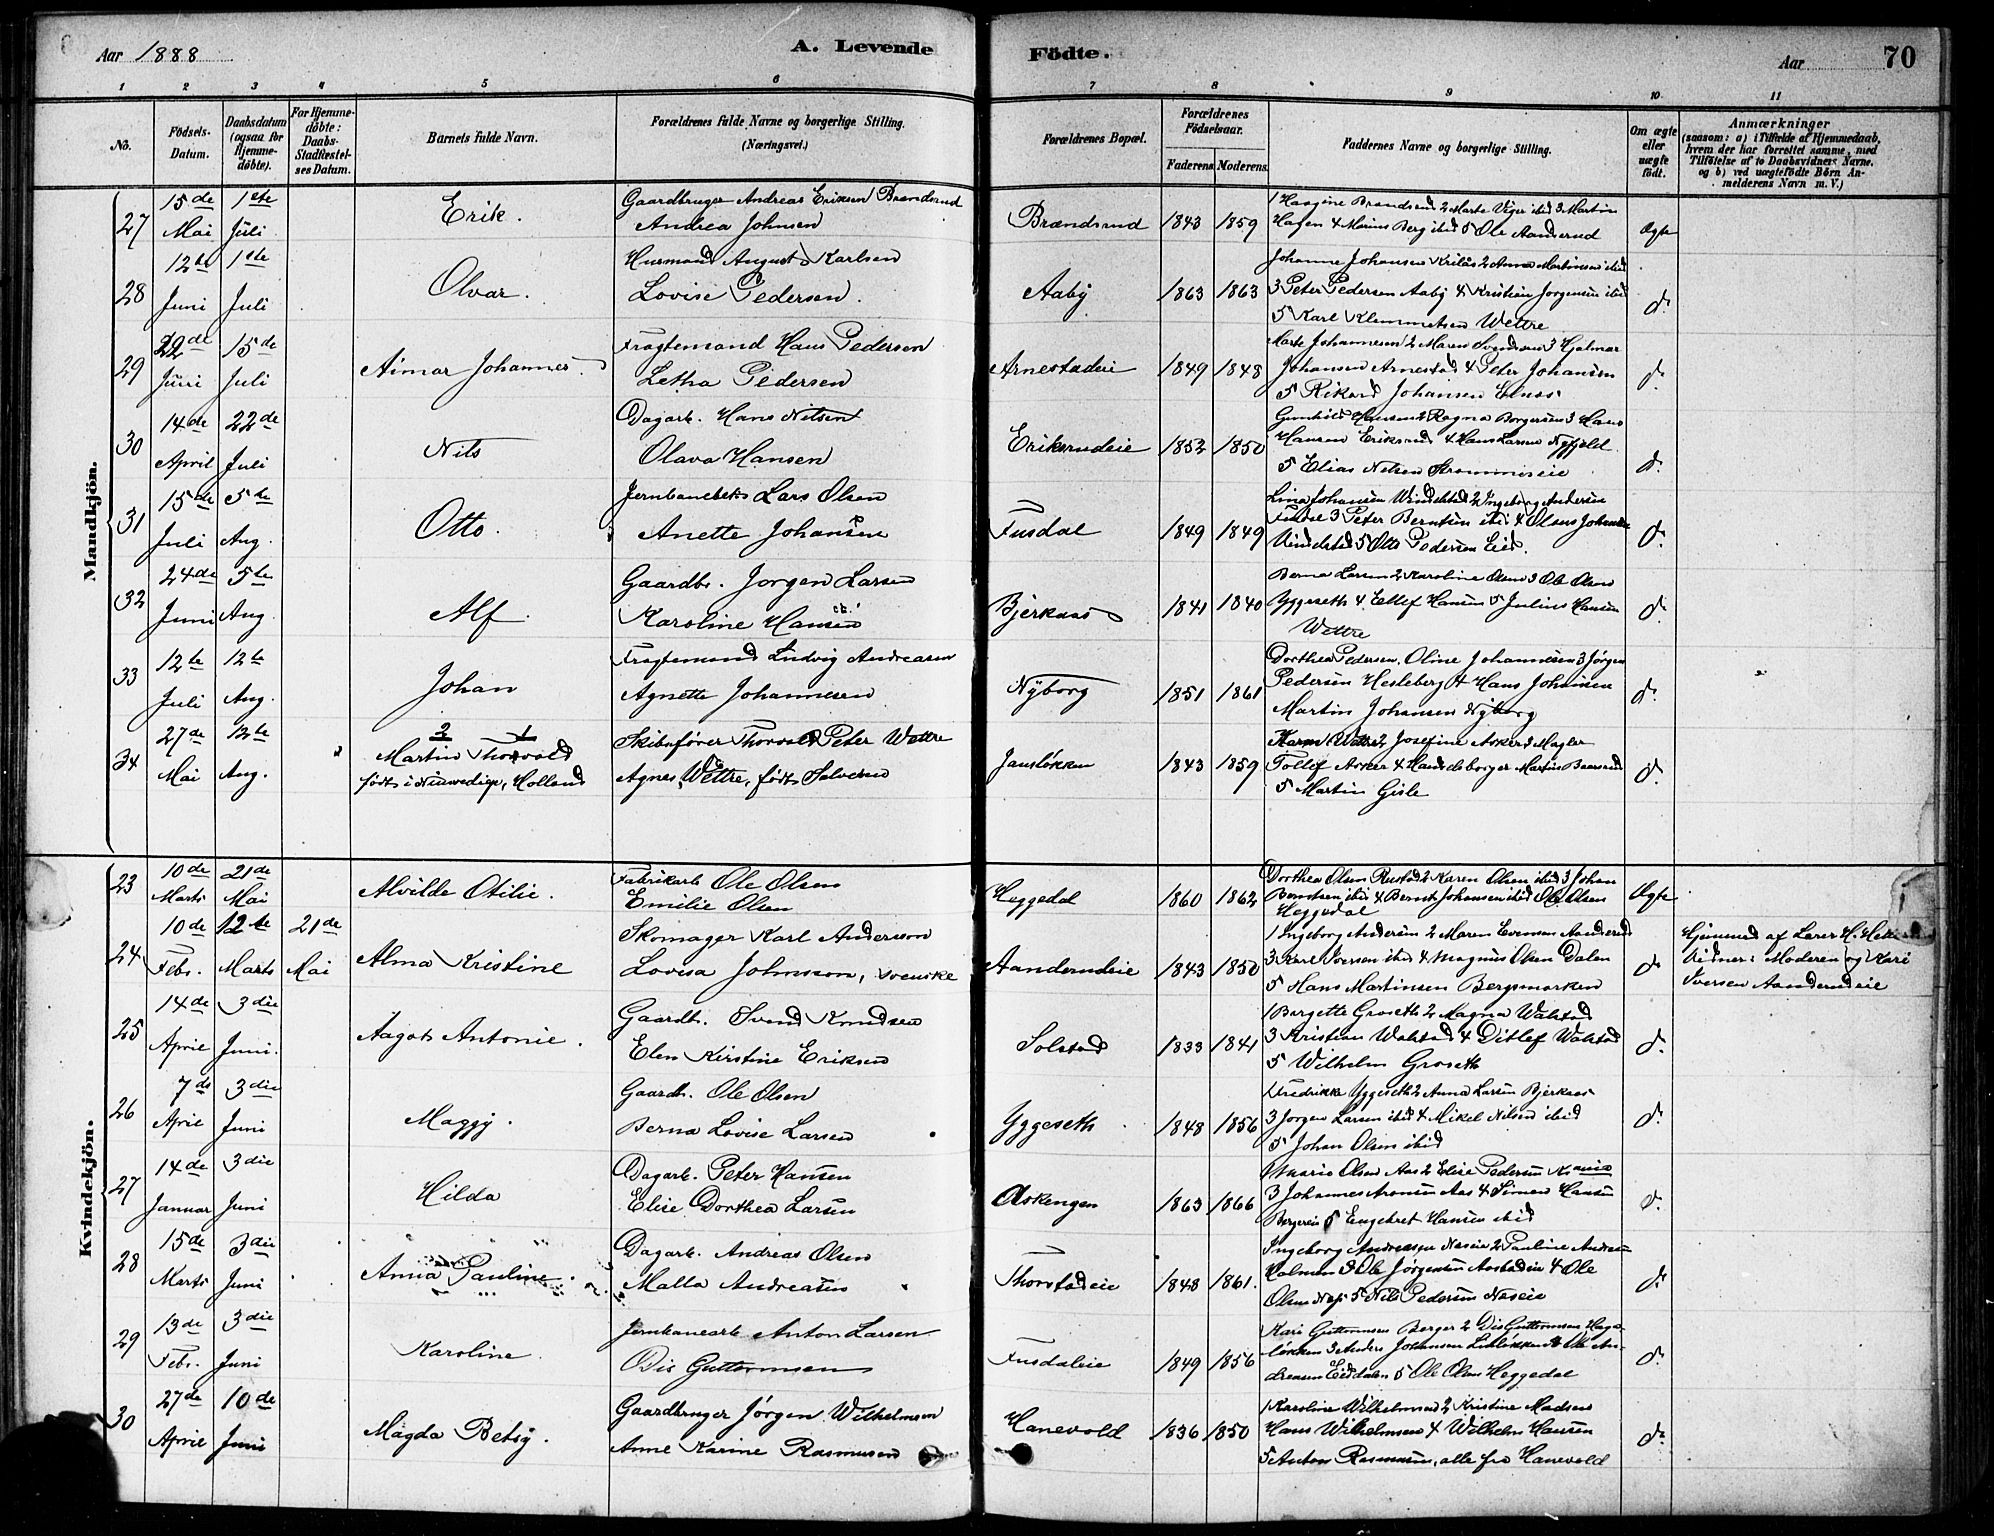 Aar 1888
A. Levende
Födte.
Aar
70
1 2 3 4 5 6 7 8 9 10 11
No.
Födsels-Datum.
Daabsdatum (ogsaa for Hjemme-döbte).
For Hjemme-döbte: Daabs-Stadfæstel-ses Datum.
Barnets fulde Navn.
Forældrenes fulde Navne og borgerlige Stilling. (Næringsvei.)
Forældrenes Bopæl.
Forældrenes Födselsaar.
Faderens. Moderens.
Faddernes Navne og borgerlige Stilling.
Om ægte eller uægte födt.
Anmærkninger
(saasom: a) i Tilfælde af Hjemmedaab,
hvem der har forrettet samme, med
Tilföielse af to Daabsvidners Navne,
og b) ved uægtefödte Börn An-
melderens Navn m. V.)
Mandkjön.
27 15de Mai 1ste Juli Erik.
Gaardbruger Andreas Eriksen Brændsrud
Andrea Johnsen
Brændsrud 1843 1859
Hagen 4 Marius Berg ibid 5 Ole Aanderud
Ægte
28 12te Juni 1ste Juli Olvar.
Husmand August Karlsen
Lovise Pedersen.
Aaby 1863 1863
Johanne Johansen 2 Anna Martinsen ibid
3 Peter Pedersen Aaby 4 Kristian Jørgensen ibid
5 Karl Klemmetsen Wettre
do
29 22de Juni 15de Juli Aimar Johannes.
Fragtemand Hans Pedersen
Letha Pedersen
Arnestadeie 1849 1848
Marte Johannesen 2 Maren Svendsen 3 Hjalmar
Johansen Arnestad 4 Peter Johansen
5 Rikard Johansen
do
30 14de April 22de Juli Nils
Dagarb. Hans Nilsen
Olava Hansen
Eriksrudeie 1852 1850
Gunhild Hansen 2 Ragna Borgersen 3 Hans
Hansen Eriksrud 4 Hans Larsen Nyfjeld
5 Elias Nilsen
do
31 15de Juli 5te Aug. Otto.
Jernbanebetj. Lars Olsen
Anette Johansen
Fusdal 1849 1849
Lina Johansen 2 Ingeborg Andersen
Fusdal 3 Peter Berntsen ibid 4 Olaus Johansen
5 Otto Pedersen Eid.
do
32 24de Juni 5te Aug Alf.
Gaardb. Jorgen Larsen
Karoline Hansen
Bjerkaas 1841 1840
Berna Larsen 2 Karoline Olsen 3 Ole Olsen
Yggeseth 4 Ellef Hansen 5 Julius Hansen
Wettre
do
33 12te Juli 12te Aug. Johan
Fragtemand Ludvig Andreasen
Agnette Johannesen
Nyborg 1851 1861
Dorthea Pedersen, Oline Johannesen 3 Jørgen
Pedersen Hesleberg 4 Hans Johansen
Martin Johansen Nyborg
do
34 27de Mai 12te Aug.
2 1
Martin Thorvald
født i Nieuwediep, Holland
Skibsfører Thorvald Peter Wettre
Agnes Wettre, født Salvesen
Jansløkken 1843 1859
Karen Wettre 2 Josefine Asker 3 Mægler
Tollef Asker 4 Handelsborger Martin
5 Martin Gisle
do
Kvindekjön.
23 10de Marts 21de Mai Alvilde Otilie.
Fabrikarb. Ole Olsen
Emilie Olsen
Heggedal 1860 1862
Dorthea Olsen Rustad 2 Karen Olsen ibid 3 Johan
Berntsen ibid 4 Bernt Johansen ibid Ole Olsen
Heggedal
Ægte
24 10de Febr. 12te Marts 21de Mai Alma Kristine
Skomager Karl Anderson
Lovisa Johnsson, svenske
Aanderudeie 1843 1850
1 Ingeborg Andersen 2 Maren Evensen Aanderud
3 Karl Iversen ibid 4 Magnus Olsen Dalen
5 Hans Martinsen Bergsmarken
do
Hjemmed af Lærer H.
Vidner: Moderen og Kari
Iversen Aanderudeie
25 14de April 3die Juni. Aagot Antonie.
Gaardb. Svend Knudsen
Elen Kirstine Eriksen
Solstad 1833 1841
1 Bergette Groseth 2 Magna Walstad
3 Kristian Walstad 4 Ditlef Walstad
5 Wilhelm Groseth
do
26 7de April 3die Juni Maggy.
Gaardb. Ole Olsen
Berna Lovise Larsen
Yggeseth 1848 1856
1 Fredrikke Yggeseth 2 Anna Larsen Bjerkaas
3 Jorgen Larsen ibid 4 Mikel Nilsen ibid
5 Johan Olsen ibid
do
27 14de Januar 3die Juni Hilda
Dagarb. Peter Hansen
Elise Dorthea Larsen
Askengen 1863 1866
1 Marie Olsen Aas 2 Elise Pedersen
3 Johannes Aronsen Aas 4 Simen Hansen
5 Engebret Hansen ibid
do
28 15de Marts 3die Juni Anna Pauline
Dagarb. Andreas Olsen
Malla Andreasen
Thorstadeie 1848 1861.
Ingeborg Andreasen Næseie 2 Pauline Andreasen
Holmen 3 Ole Jørgensen 4 Ole
Olsen Næs 5 Nils Pedersen Næseie
do
29 13de Febr. 3die Juni Karoline.
Jernbanearb Anton Larsen
Dis Guttormsen
Fusdaleie 1849 1856
Kari Guttormsen Berger 2 Dis Guttormsen Haga-
løkken 3 Anders Johansen 4 Ole An-
dreasen Eiddalen 5 Ole Olsen Heggedal
do
30 27de April 10de Juni Magda Betsy.
Gaardbruger Jørgen Wilhelmsen
Anne Karine Rasmussen
Hanevold 1836 1850
1 Karoline Wilhelmsen 2 Kristine Madsen
Hans Wilhelmsen 4 Wilhelm Hansen
5 Anton Rasmussen, alle fra Hanevold
do